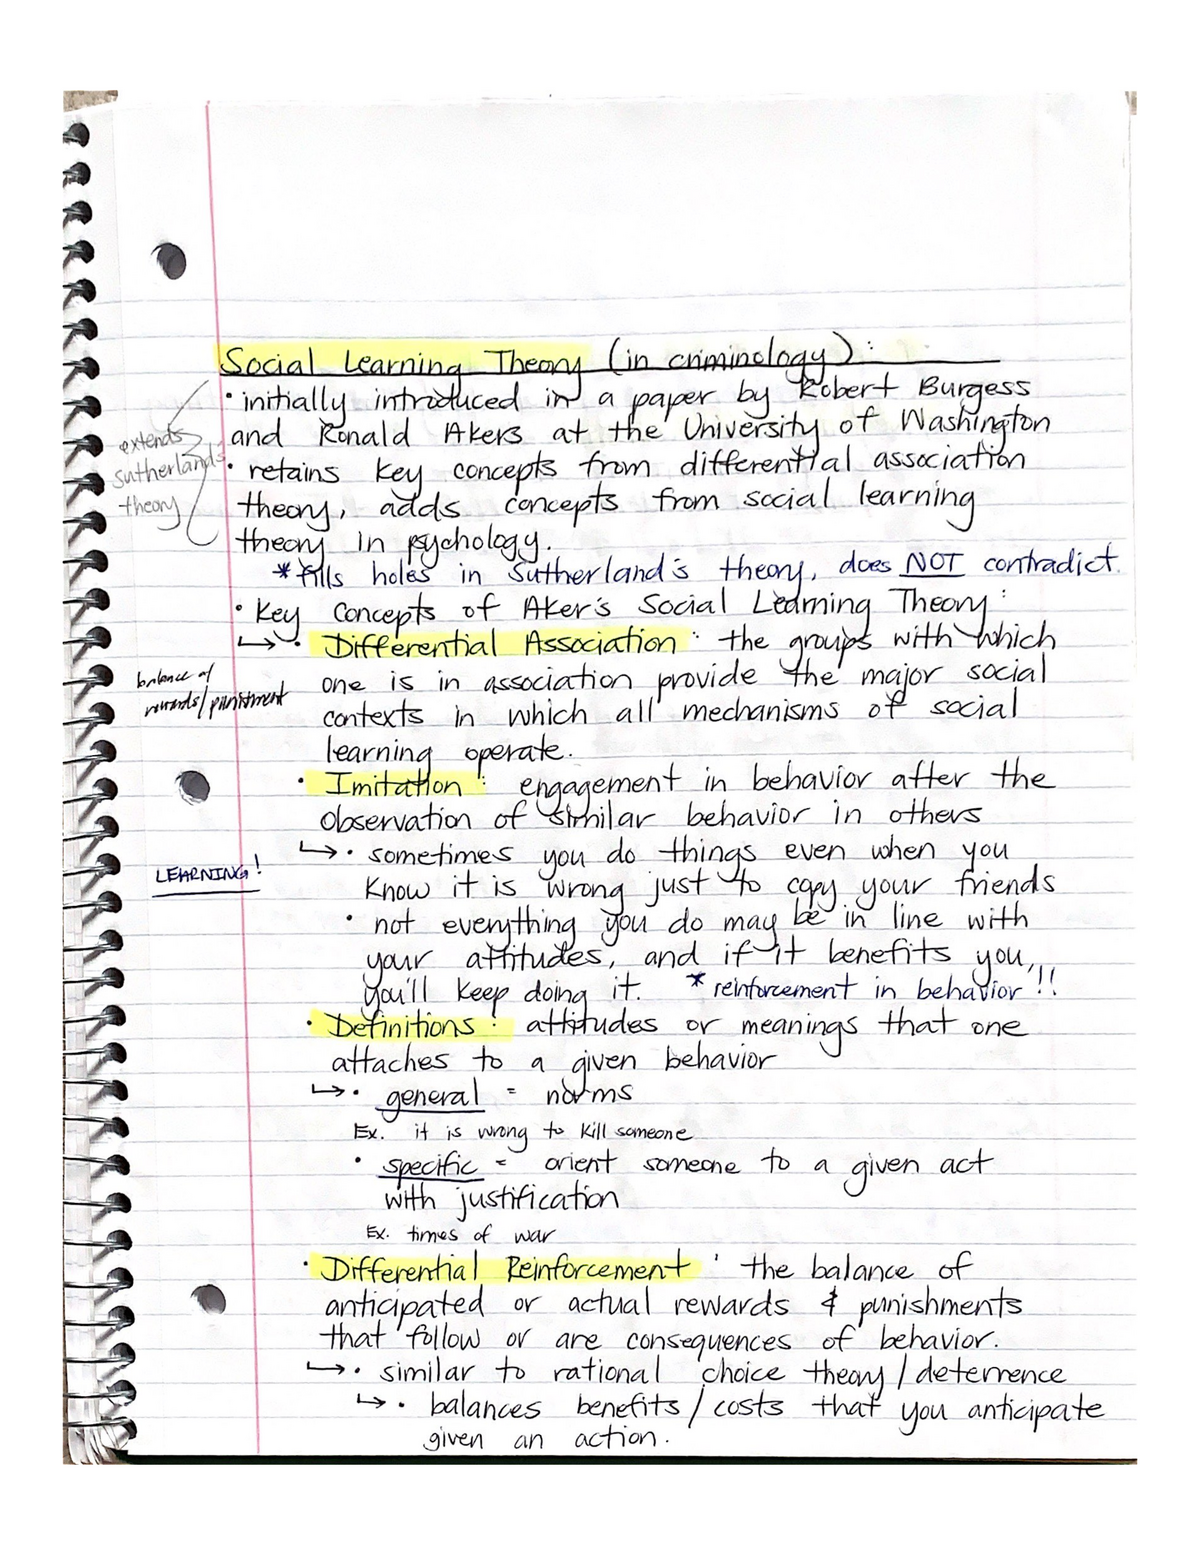 Social Learning Theory (in criminology):
• initially introduced in a paper by Robert Burgess
and Ronald Akers at the University of Washington
extends
sutherlands
theory
• retains key concepts from differential association
theory, adds concepts from social learning
theory in psychology.
*fills holes in Sutherland's theory, does NOT contradict.
• Key Concepts of Aker's Social Learning Theory:
↳ • Differential Association: the groups with which
one is in association provide the major social
contexts in which all mechanisms of social
learning operate.
balance of
rewards/punishment
• Imitation: engagement in behavior after the
observation of similar behavior in others
↳ • sometimes you do things even when you
know it is wrong just to copy your friends
LEARNING!
• not everything you do may be in line with
your attitudes, and if it benefits you,
you'll keep doing it. * reinforcement in behavior!!
• Definitions: attitudes or meanings that one
attaches to a given behavior
↳ • general = norms
Ex. it is wrong to kill someone
• specific = orient someone to a given act
with justification
Ex. times of war
• Differential Reinforcement: the balance of
anticipated or actual rewards & punishments
that follow or are consequences of behavior.
↳ • similar to rational choice theory/deterrence
↳ • balances benefits/costs that you anticipate
given an action.